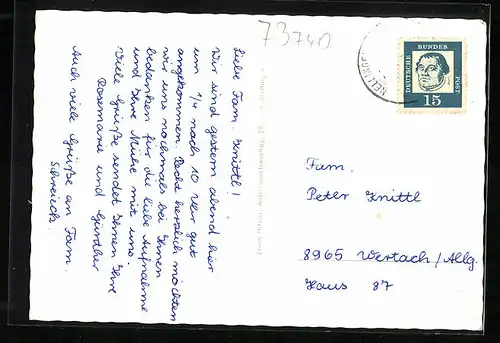 73740
Liebe Fam. Knittl!
Wir sind gestern abend hier
um 1/4 nach 10 Uhr gut
angekommen. Recht herzlich möchten
wir uns nochmals bei Ihnen
bedanken für die liebe Aufnahme
und Ihre Mühe mit uns.
Viele Grüße sendet Ihnen Ihre
Rosemarie und Günther
Auch viele Grüße an Fam.
DEUTSCHE
BUNDES
POST
15
Fam.
Peter Knittl
8965 Wertach/Allg.
Haus 87